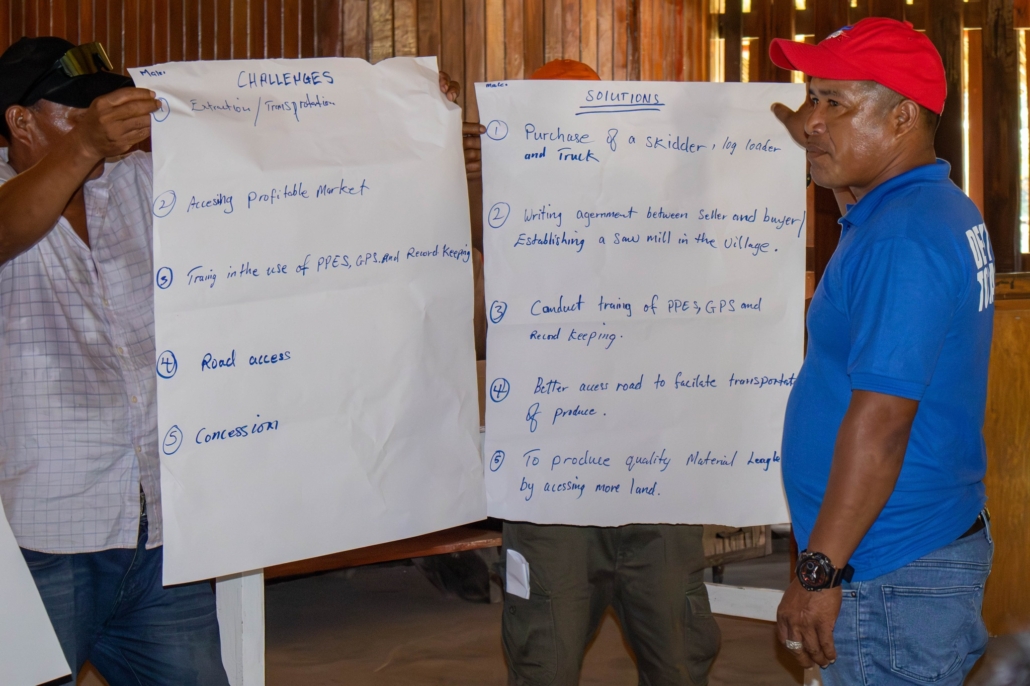 Male:
CHALLENGES
① Extraction/Transprotation
② Accesing profitable Market
③ Traing in the use of PPES, GPS. And Record Keeping
④ Road access
⑤ Concession
Male:
SOLUTIONS
① Purchase of a skidder, log loader
and Truck
② Writing agernment between seller and buyer/
Establishing a saw mill in the village.
③ Conduct traing of PPES, GPS and
Record Keeping.
④ Better access road to facilate transportat
of produce.
⑤ To produce quality Material
by acessing more land.